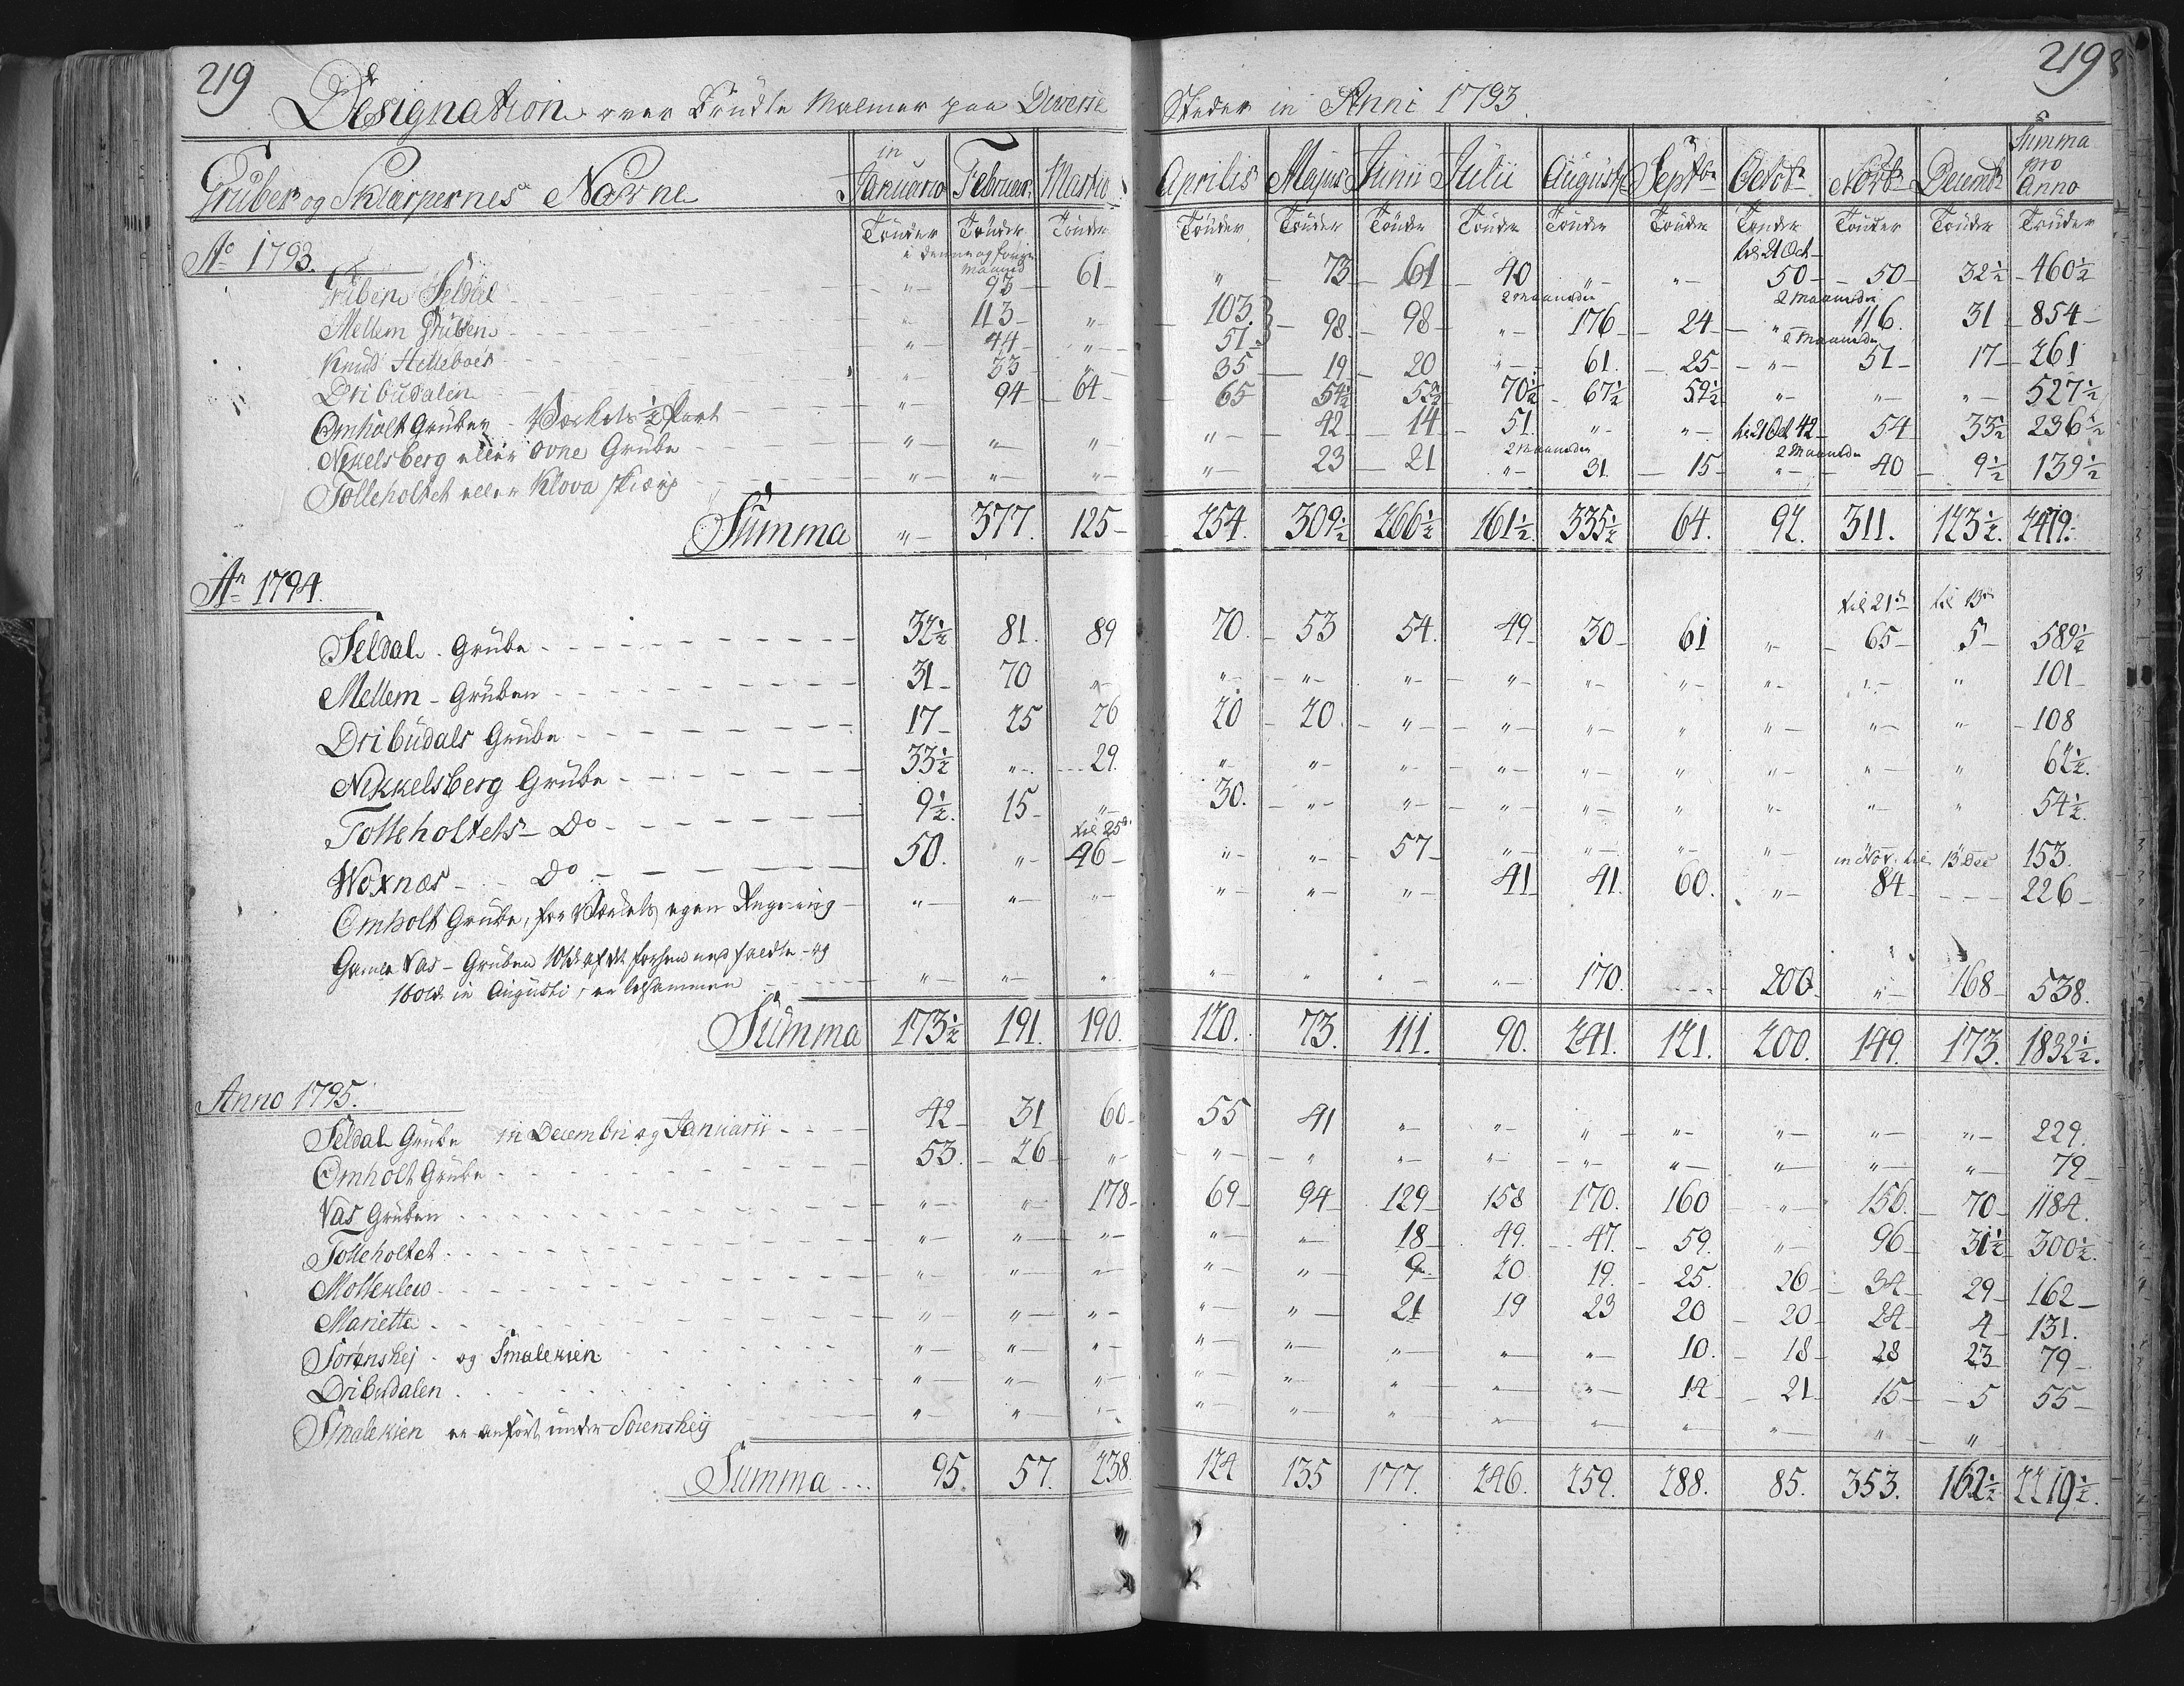 219 219
Designation over brudte Malmer paa Diverse Steder in Anni 1793.
Gruber og Skiærpernes Navne in Januario Februar Martio Aprilis Majus Junii Julii Augusti Septbr Octobr Novbr Decembr Summa pro Anno
Tönder Tönder Tönder Tönder Tönder Tönder Tönder Tönder Tönder Tönder Tönder Tönder Tönder
Ao 1793. i denne og forige Maaned til 21 Oct
Gruben Seldal " 93 61 " 73 61 40 " " 50 50 32½ 460½
2 maaneder 2 maaneder
Mellem Gruben " 113 " 103 98 98 " 176 24 " 116. 31 854
Knud Helleboes " 44 " 51 2 Maaneder
Dribudalen " 33 " 35 19 20 " 61. 25 " 51 17 261
Omholt Gruben - Værkets ½ Part " 94 64 65 54½ 52½ 70½ 67½ 52½ " " " 527½
Nikelsberg eller ovne Grube " " " " 42 14 51 " " til 21 Oct 42 54 33½ 236½
2 Maaneder 2 Maaneder
Tolleholtet eller Klova skiærp " " " " 23 21 " 31. 15 " 40 9½ 139½
Summa " 377. 125 254. 309½ 266½ 161½ 335½ 64. 92. 311. 123½. 2419.
An 1794.
til 21de til 13de
Seldal Grube 32½ 81. 89 70. 53 54. 49 30 61 " 65 5 589½
Mellem Gruben 31 70 " " " " " " " " " " 101
Dribudals Grube 17 25 26 20 20. " " " " " " " 108
Nikkelsberg Grube 33½ " 29. " " " " " " " " " 62½.
Tolleholtets Do 9½. 15 " 30. " " " " " " " " 54½.
til 25de
Woxnæs Do 50. " 46 " " 57 " " " " in Nov. til 13 Dec 153.
Omholt Grube, for Værkets egen Regning " " " " " " 41 41. 60. " 84 226
Gamle Vas Gruben
160 in Augusti, er tilsammen " " " " " " " 170. 200 " 168 538.
Summa 173½ 191. 190. 120. 73. 111. 90. 241. 121. 200. 149. 173. 1832½.
Anno 1795.
Seldal Grube in Decembri og Januarii 42 31 60 55 41 " " " " " " " 229.
Omholt Grube 53. 26 " " " " " " " " " " 79
Vas Gruben " " 178 69 94 129 158 170. 160 " 156. 70 1184.
Tolleholtet " " " " " 18 49. 47. 59. " 96 31½ 300½.
Mölleklew " " " " " 9 20 19. 25. 26 34 29 162
Marietta " " " " " 21 19 23 20 20 24 4 131.
Sörenshej og Smalekien " " " " " " " " 10. 18 28 23 79
Dribudalen " " " " " " " " 14 21 15 5 55
Smalekien er anfört under Sörenshej " " " " " " " " " " " "
Summa 95. 57. 238. 124 135 177. 246. 259. 288. 85. 353. 162½ 2219½.